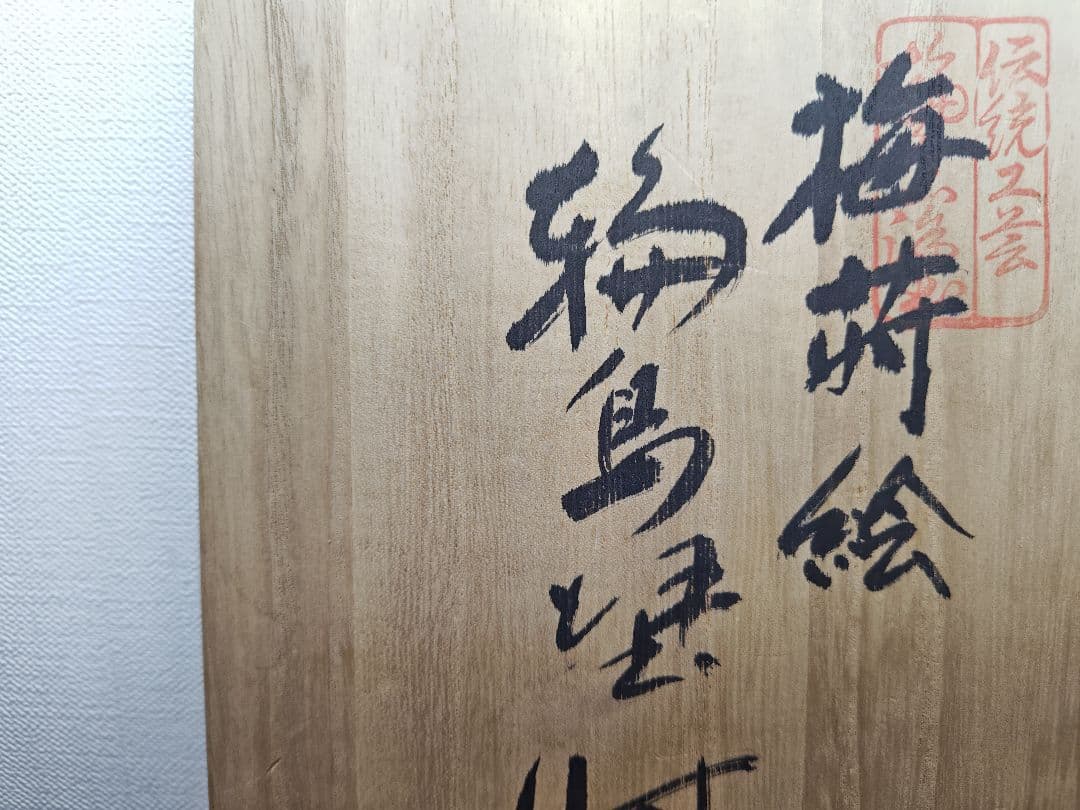 伝統工芸
梅蒔絵
輪島塗